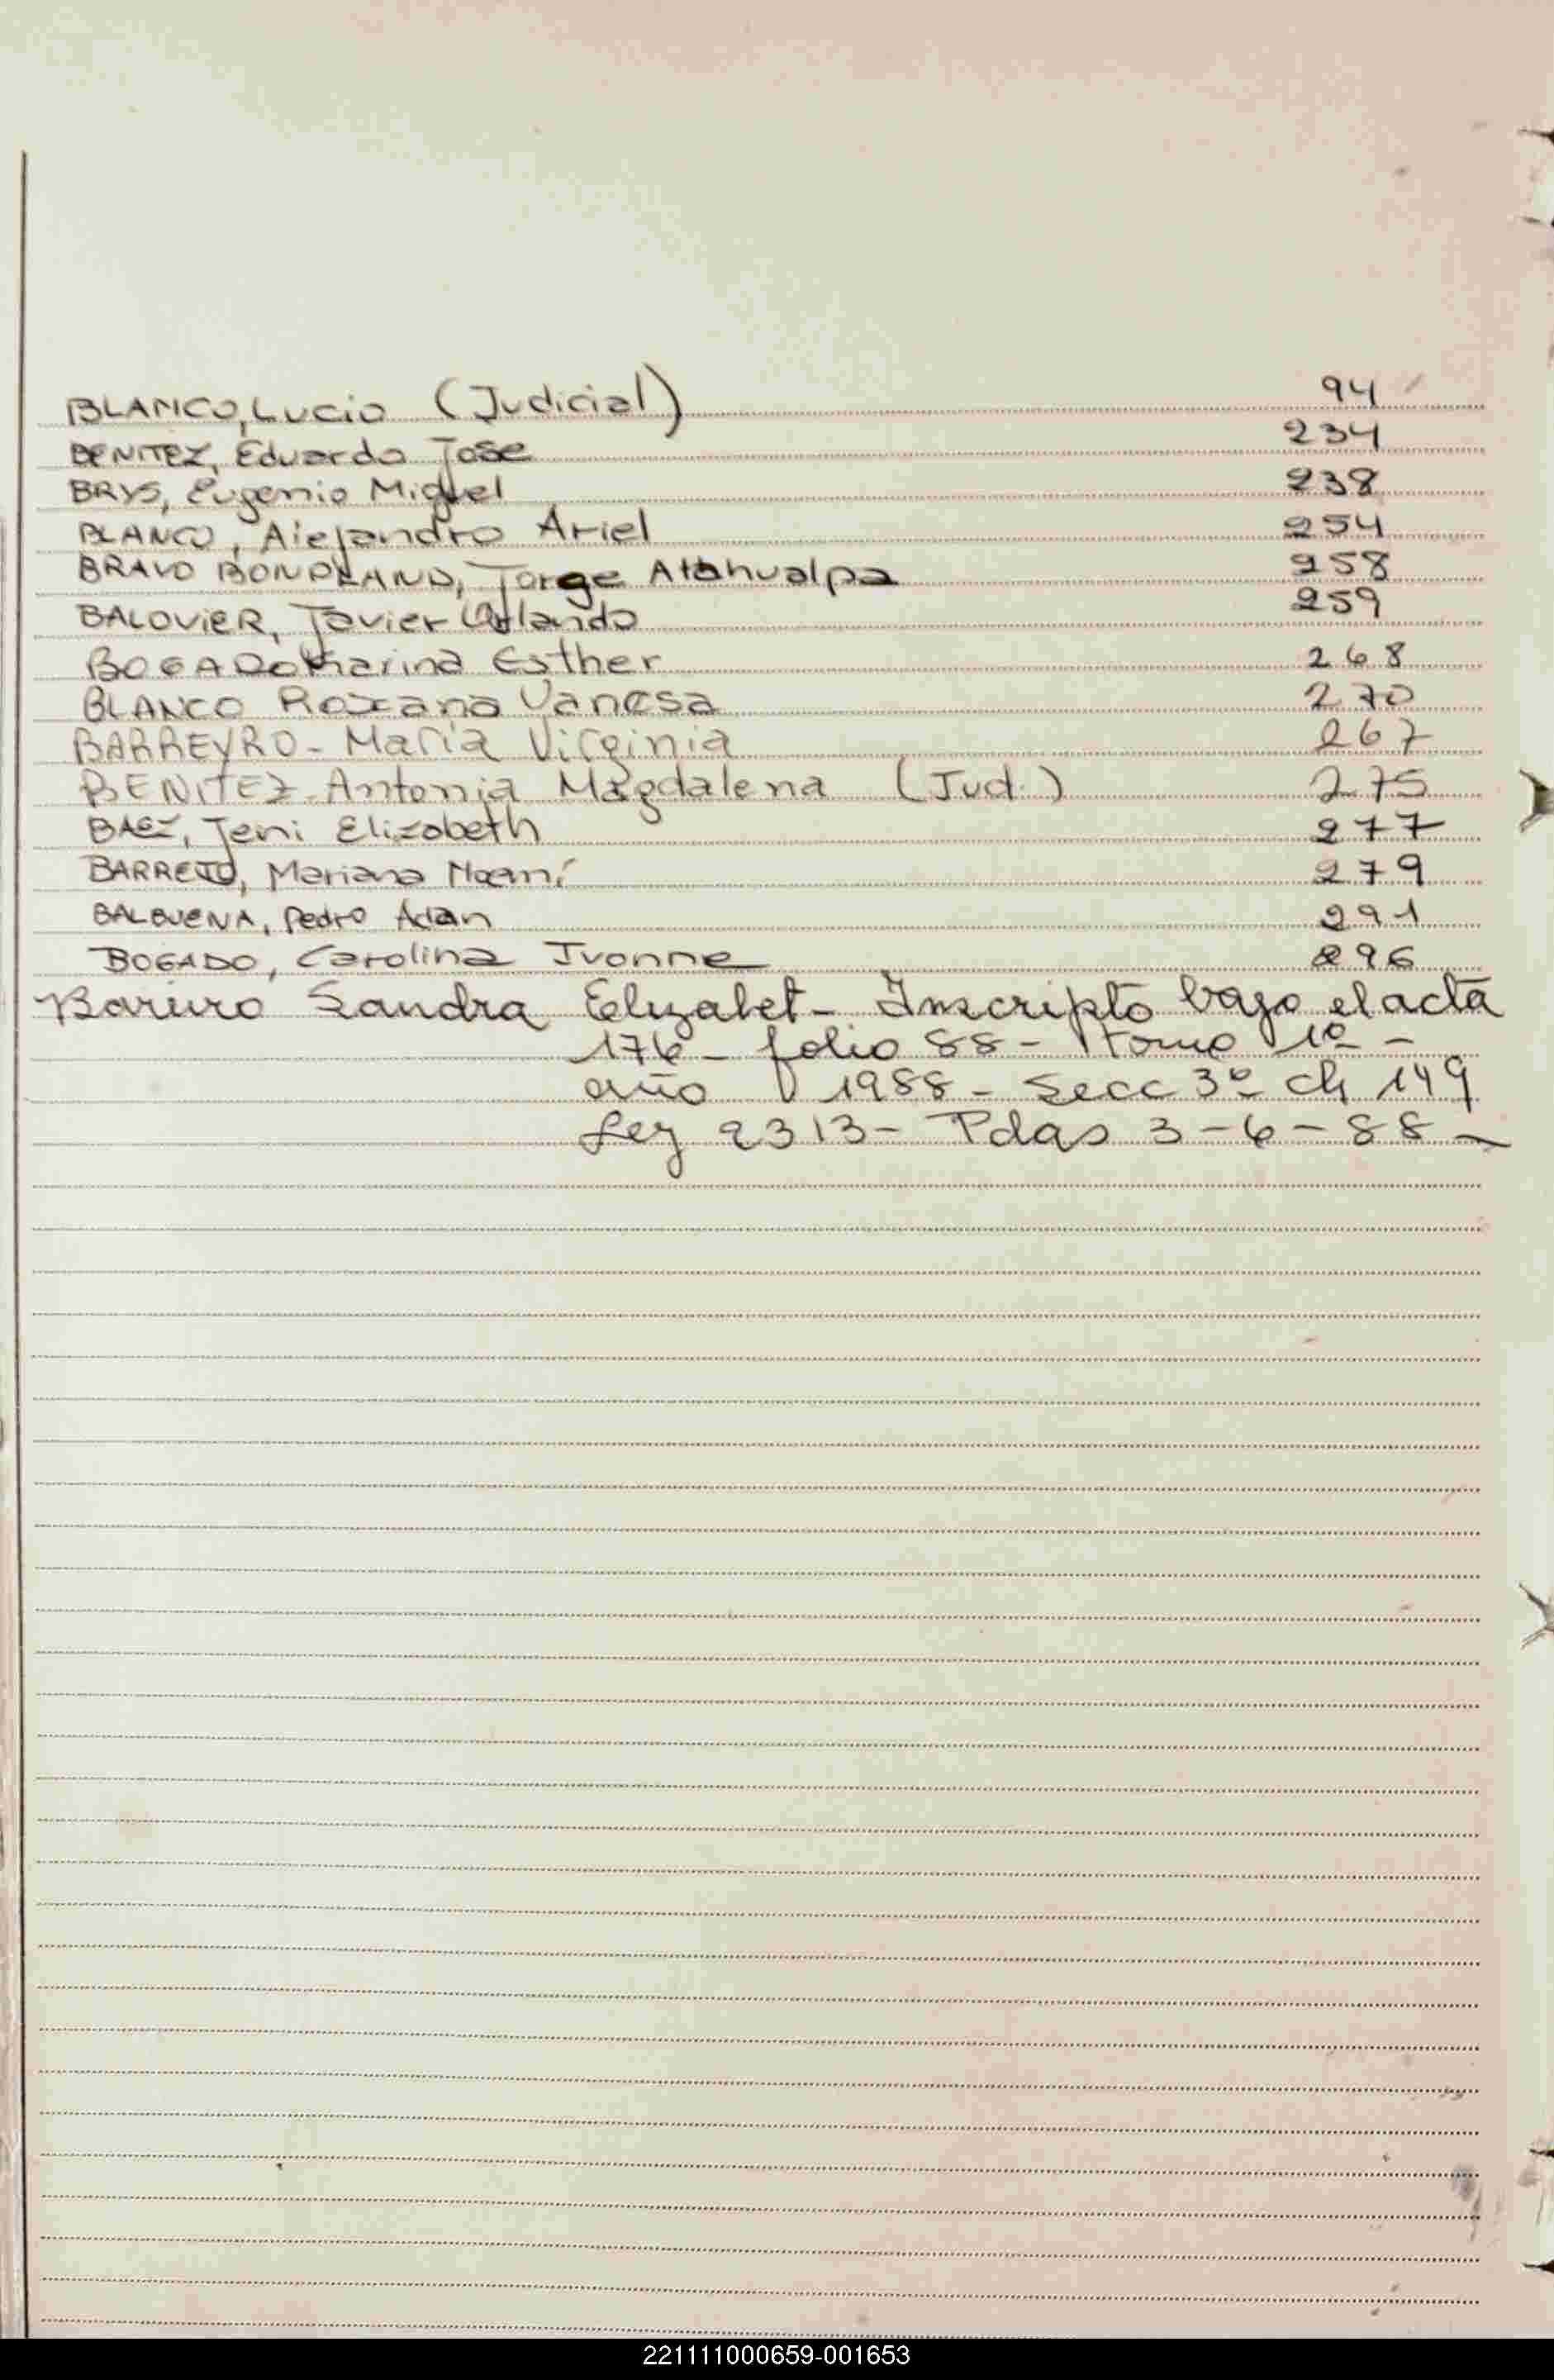 BLANCO, Lucio (Judicial) 94
BENITEZ, Eduardo Jose 234
BRYS, Eugenio Miguel 238
BLANCO, Alejandro Ariel 254
BRAVO BONPLAND, Jorge Atahualpa 258
BALOVIER, Javier Orlando 259
BOGADO Marina Esther 268
BLANCO Roxana Vanesa 270
BARREYRO - María Virginia 267
BENITEZ - Antonia Magdalena (Jud.) 275
BAEZ, Jeni Elizabeth 277
BARRETO, Mariana Noemí 279
BALBUENA, Pedro Adan 291
BOGADO, Carolina Ivonne 296
Sandra Elizabet - Inscripto bajo el acta
176 - folio 88 - tomo 1º -
año 1988 - Secc 3º ch 149
Ley 2313 - Pdas 3-6-88
221111000659-001653